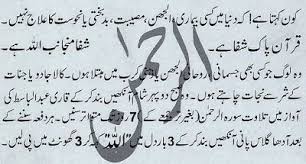 کون کہتا ہے! کہ دنیا میں کسی بیماری والجھن، مصیبت، بدبختی یا نحوست کا علاج نہیں۔
قرآن پاک شفا ہے۔ شفا منجانب اللہ ہے۔
الرحمٰن
وہ لوگ جو کسی بھی جسمانی، روحانی الجھن کرب میں مبتلا ہوں۔ کالا جادو یا جنات کے
شر سے نجات چاہتے ہوں۔ وہ صبح دوپہر شام آنکھیں بند کر کے قاری عبدالباسط کی
آواز میں تلاوت سورۃ الرحمٰن 7 روز تک متواتر سنیں۔ ہر دفعہ سننے کے
بعد آدھا گلاس پانی آنکھیں بند کر کے 3 بار دل میں "اللہ" کہہ کر 3 گھونٹ میں پی لیں۔